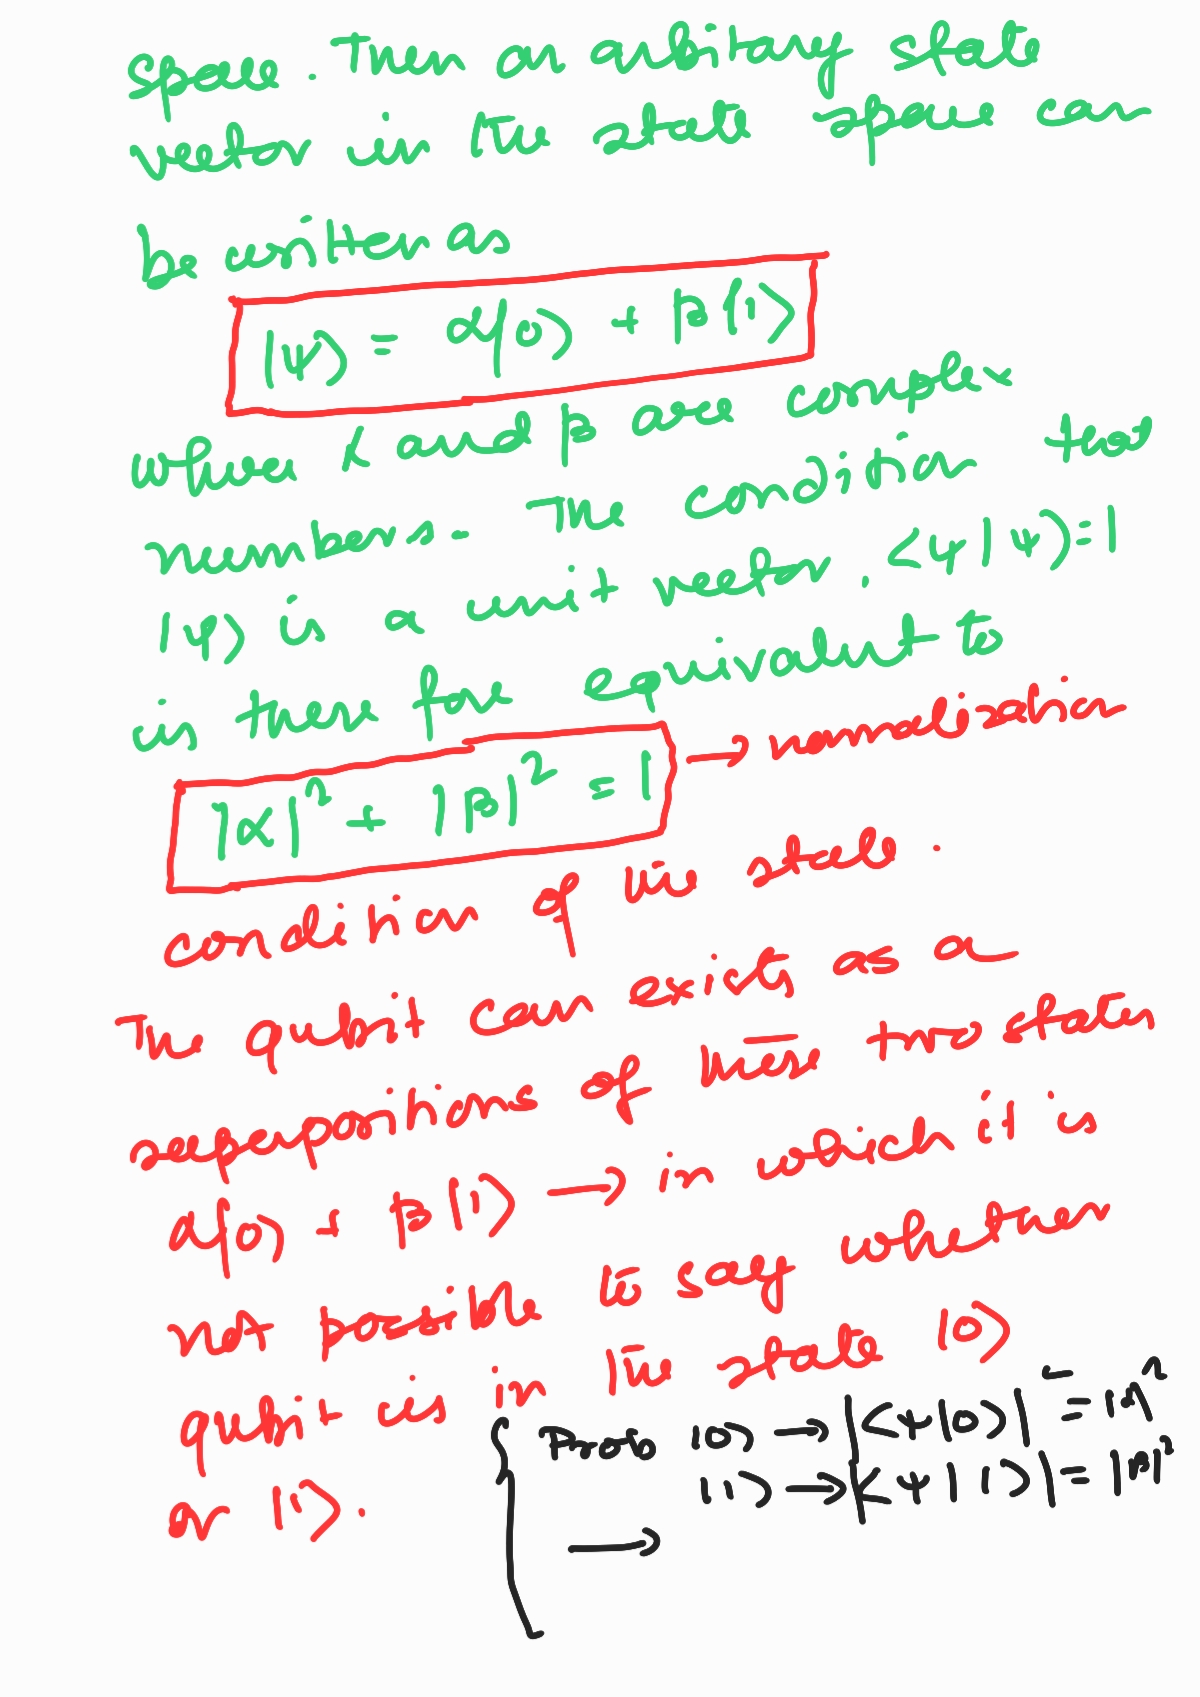 space. Then an arbitary state
vector in the state space can
be written as
|ψ⟩ = α|0⟩ + β|1⟩
where α and β are complex
numbers. The condition that
|ψ⟩ is a unit vector, <ψ|ψ⟩=1
is there fore equivalent to
|α|² + |β|² = 1 → normalization
condition of the state.
The qubit can exists as a
superpositions of these two states
α|0⟩ + β|1⟩ → in which it is
not possible to say whether
qubit is in the state |0⟩
or |1⟩.
Prob |0⟩ → |<ψ|0⟩|² = |α|²
|1⟩ → |<ψ|1⟩| = |β|²
→